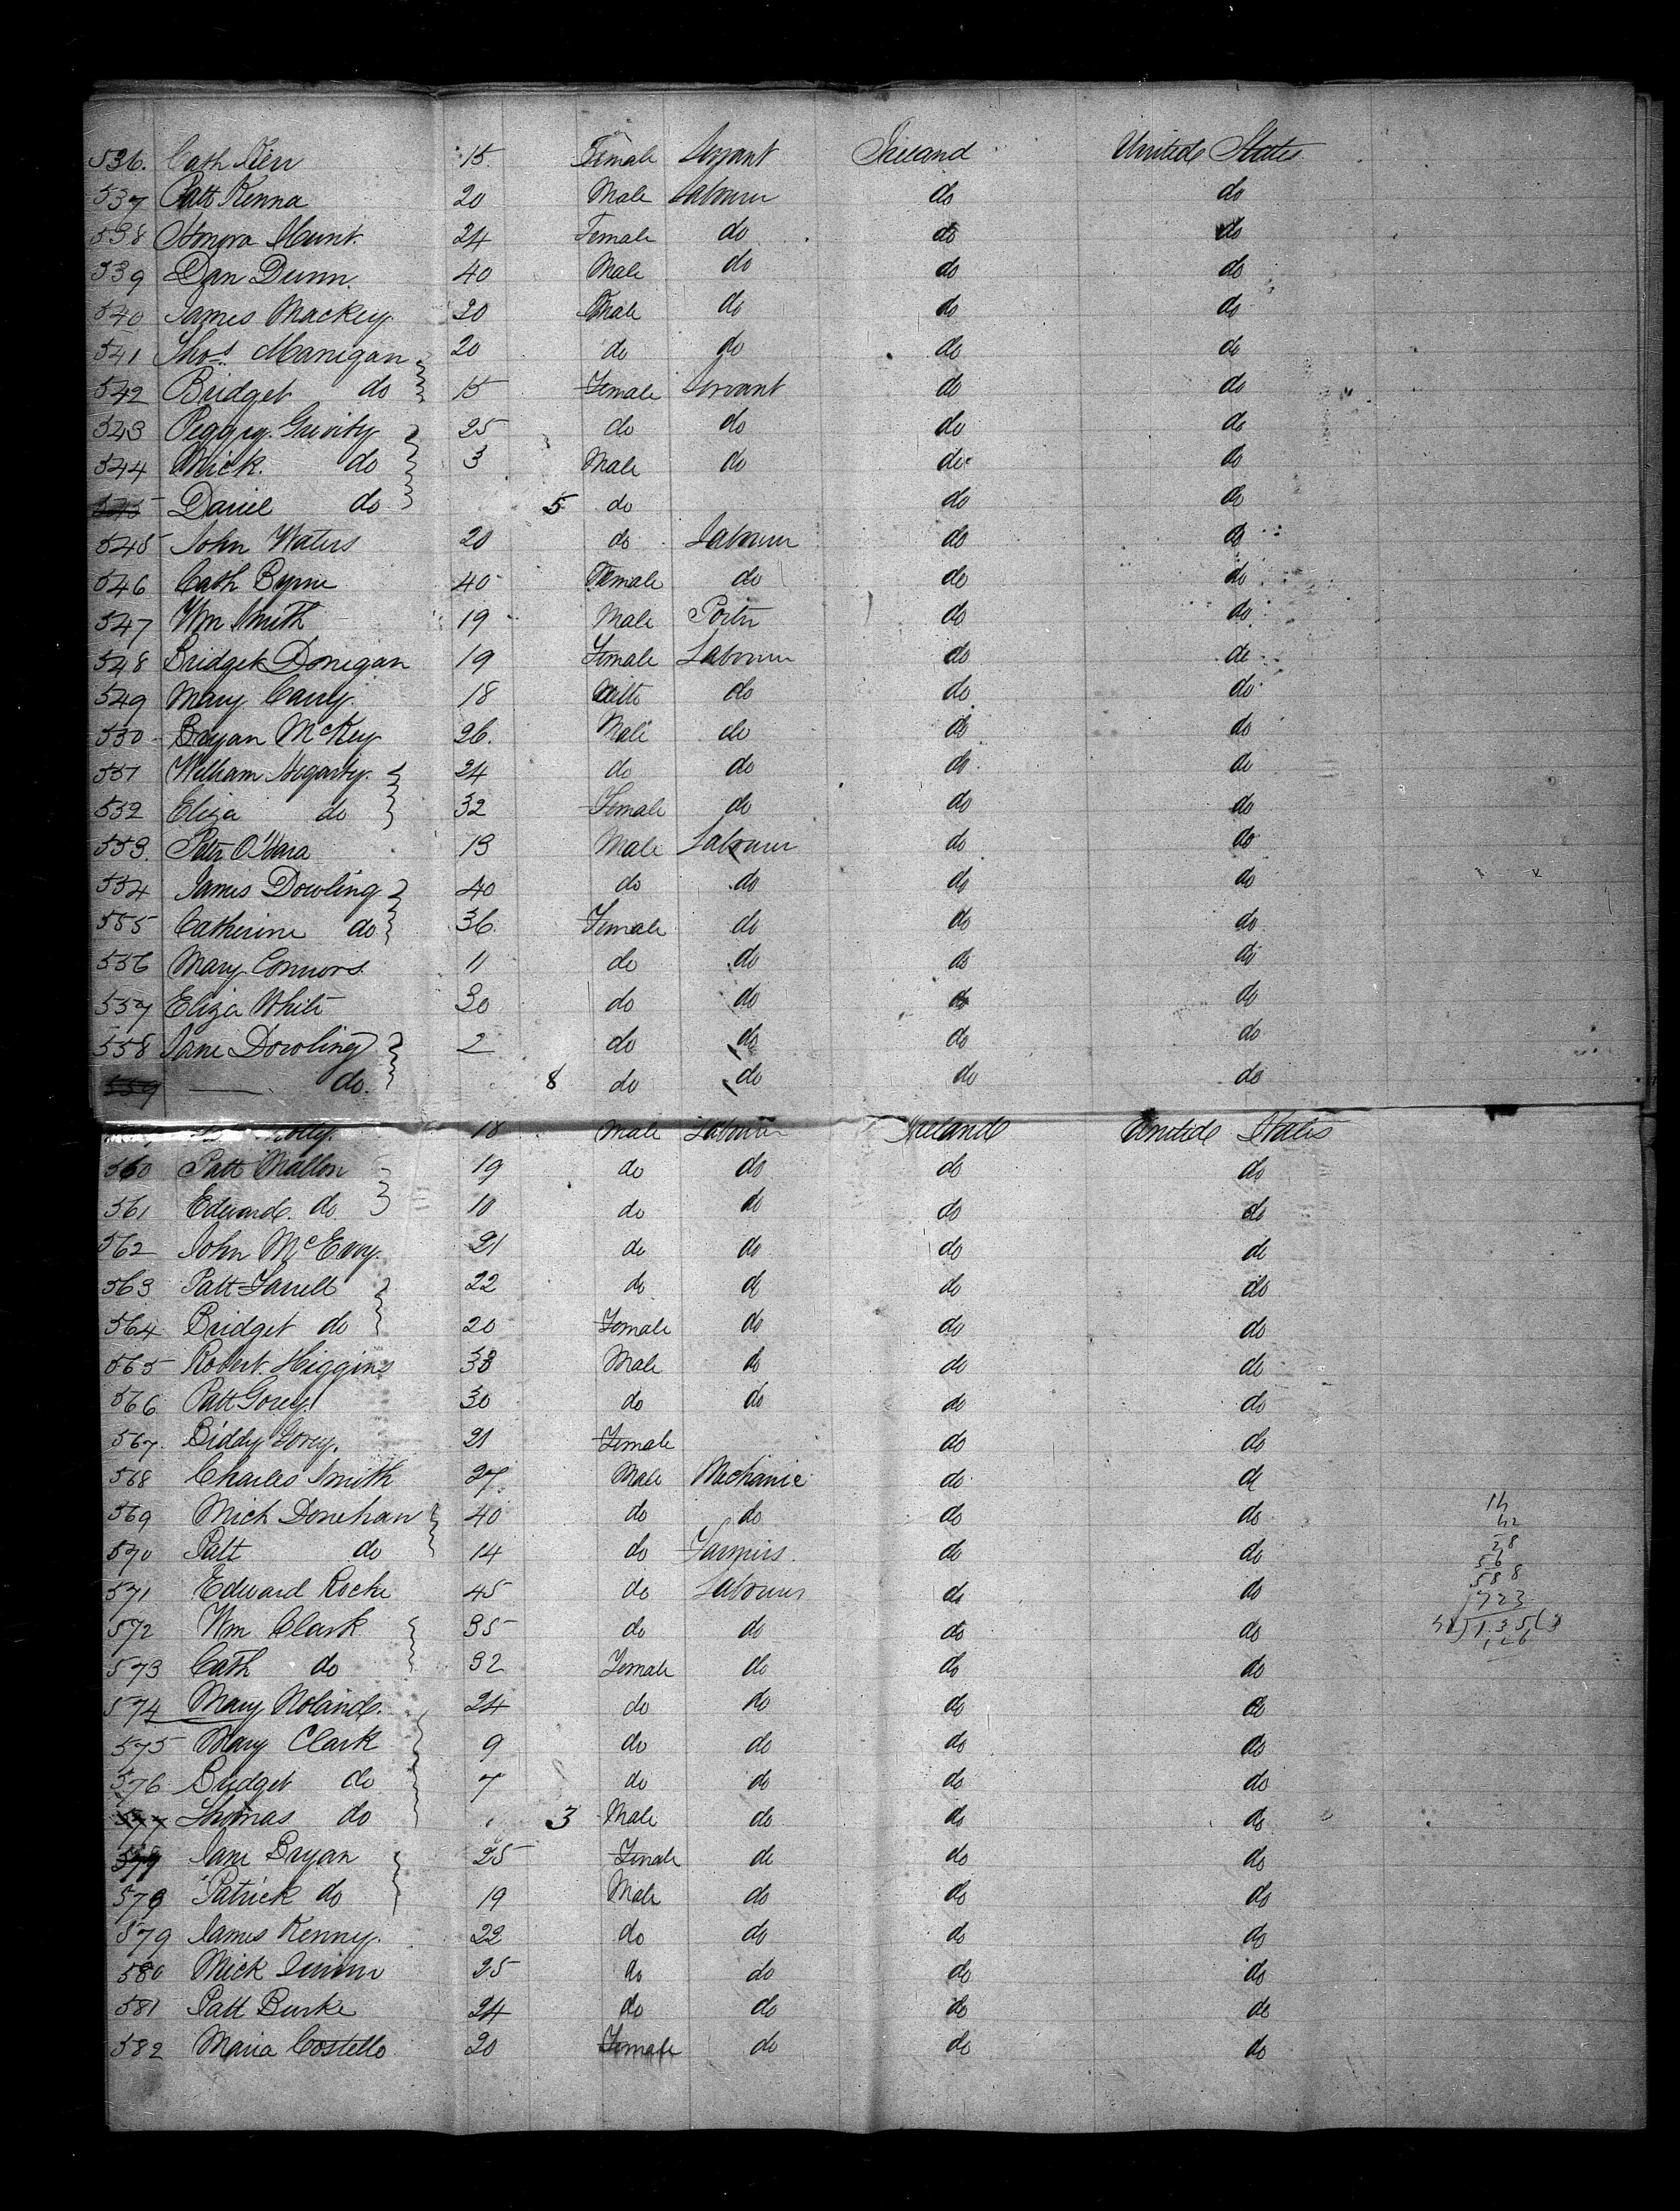 536. Cath Kerr 15 Female Servant Ireland United States
537 Patt Kenna 20 Male Labourer do do
538 Honora Hunt. 24 Female do do do
539 Dan Dunn. 40 Male do do do
540 James Mackey 20 Male do do do
541 Thos Manegan 20 do do do do
542 Bridget do 15 Female Servant do do
543 Peggy Grivity 25 do do do do
544 Mick. do 3 Male do do do
545 Daniel do 5 do do do
545 John Waters 20 do Labourer do do
546 Cath Byrne 40 Female do do do
547 Wm Smith 19 Male Porter do do
548 Bridget Donegan 19 Female Labourer do do
549 Mary Carry. 18 ditto do do do
550 Bryan McKey 26. Male do do do
551 William Hegarty. 24 do do do do
552 Eliza do 32 Female do do do
553. Peter O'Hara 13 Male Labourer do do
554 James Dowling 40 do do do do
555 Catherine do 36. Female do do do
556 Mary Connors. 11 do do do do
557 Eliza White 30 do do do do
558 Jane Dowling 2 do do do do
559 do. 8 do do do do
18 Male Labourer Ireland United States
560 Patt Mallon 19 do do do do
561 Edward do 10 do do do do
562 John McEvoy. 21 do do do do
563 Patt Farrell 22 do do do do
564 Bridget do 20 Female do do do
565 Robert Higgins 38 Male do do do
566 Patt Gorey. 30 do do do do
567. Biddy Gorey. 21 Female do do
568 Charles Smith 27. Male Mechanic do do
569 Mich Donehan 40 do do do do
570 Patt do 14 do Farmers. do do
571 Edward Roche 45 do Labourer do do
572 Wm Clark 35 do do do do
573 Cath do 32 Female do do do
574 Mary Noland. 24 do do do do
575 Mary Clark 9 do do do do
576 Bridget do 7 do do do do
577 Thomas do 3 Male do do do
Jane Bryan 25 Female do do do
578 Patrick do 19 Male do do do
579 James Kenny. 22 do do do do
580 Mick Quinn 25 do do do do
581 Patt Burke 24 do do do do
582 Maria Costello 20 Female do do do